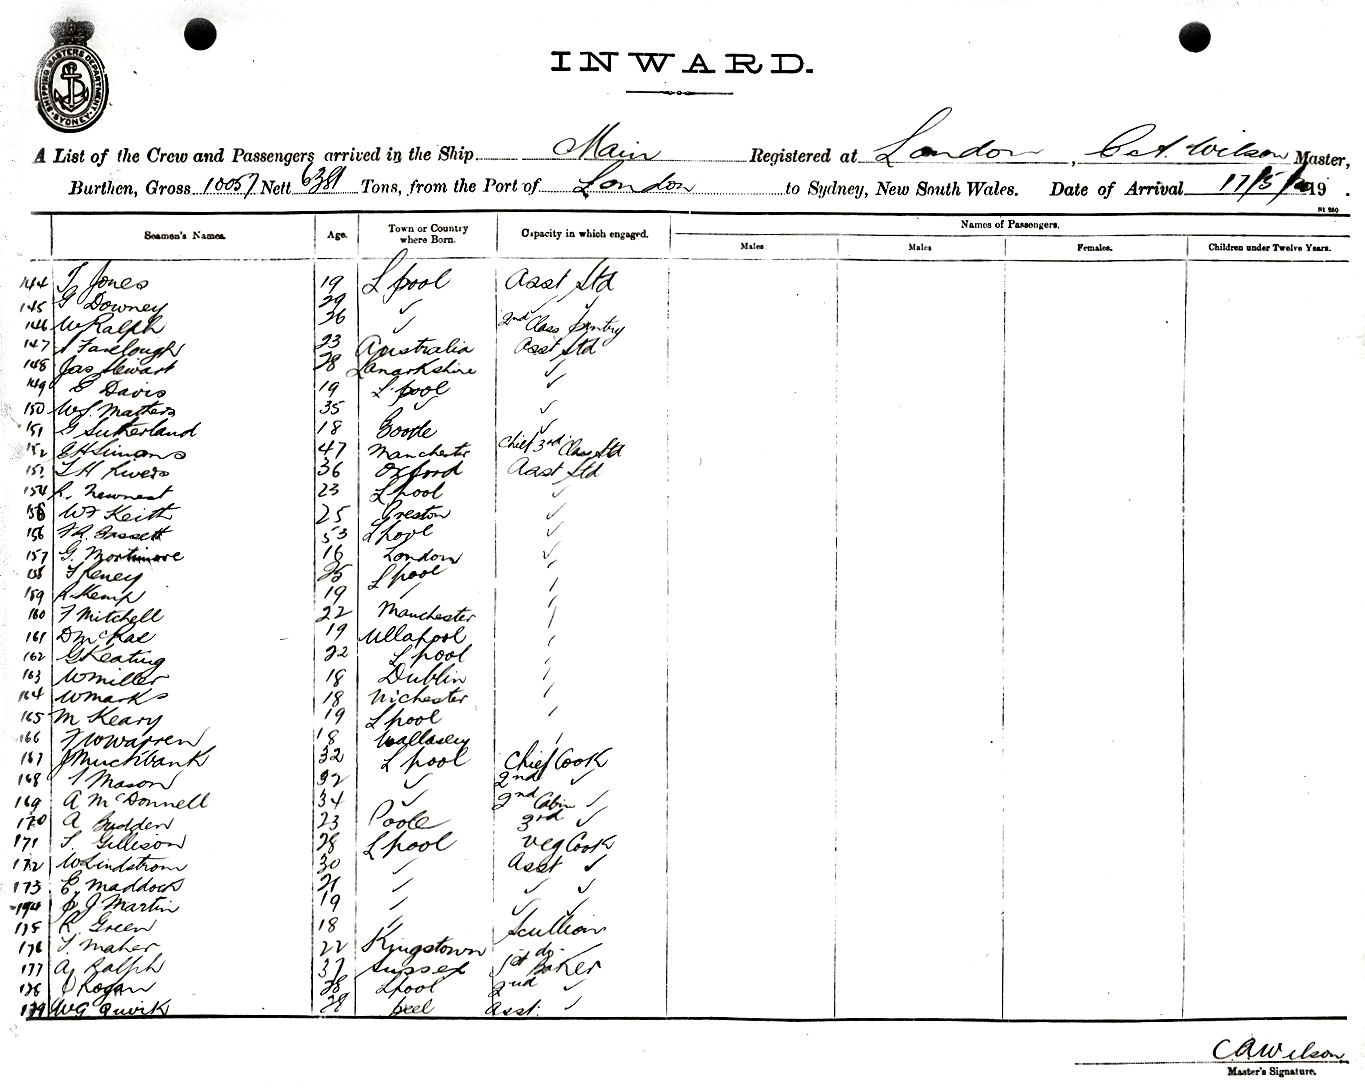 SHIPPING MASTERS DEPARTMENT SYDNEY
INWARD.
A List of the Crew and Passengers arrived in the Ship Main Registered at London, C.A. Wilson Master,
Burthen, Gross 10057 Nett 6381 Tons, from the Port of London to Sydney, New South Wales. Date of Arrival 17/5/ 19 .
Seamen's Names. Age. Town or Country where Born. Capacity in which engaged. Names of Passengers.
Males Males Females. Children under Twelve Years.
144 T Jones 19 Lpool Asst Std
145 G Downey 29 ✓ ✓
146 W Ralph 26 ✓ 2nd Class Pantry
147 Fairclough 23 Australia Asst Std
148 Jas Stewart 28 Lanarkshire ✓
149 E Davis 19 L'pool ✓
150 W.S. Matters 35 ✓ ✓
151 G Sutherland 18 Bootle ✓
152 Simans 47 Manchester Chief 3rd Class Std
153 Rivers 36 Oxford Asst Std
154 Newnest 23 Lpool ✓
155 Keith 25 Preston ✓
156 53 Lpool ✓
157 G. Mortimore 16 London ✓
158 25 Lpool
159 Kemp 19 ✓
160 F Mitchell 22 Manchester
161 D McRae 19 Ullapool
162 G Keating 22 Lpool
163 W Miller 18 Dublin
164 W Marks 18
165 M Keary 19 Lpool
166 Warren 18 Wallasey
167 J Muchbank 32 Lpool Chief Cook
168 Mason 32 ✓ 2nd ✓
169 A McDonnell 34 ✓ 2nd Cabin ✓
170 A Budden 23 Poole 3rd ✓
171 T. Gillison 28 Lpool Veg Cook
172 W Lindstrom 30 ✓ Asst ✓
173 E. Maddock 21 ✓ ✓ ✓
174 J Martin 19 ✓ ✓ ✓
175 R Green 18 ✓ Scullion
176 T. Maher 22 Kingstown do
177 A Ralph 37 Sussex 1st Baker
178 Rogan 28 Lpool 2nd ✓
179 WG Quirk 28 Peel Asst. ✓
C A Wilson
Master's Signature.